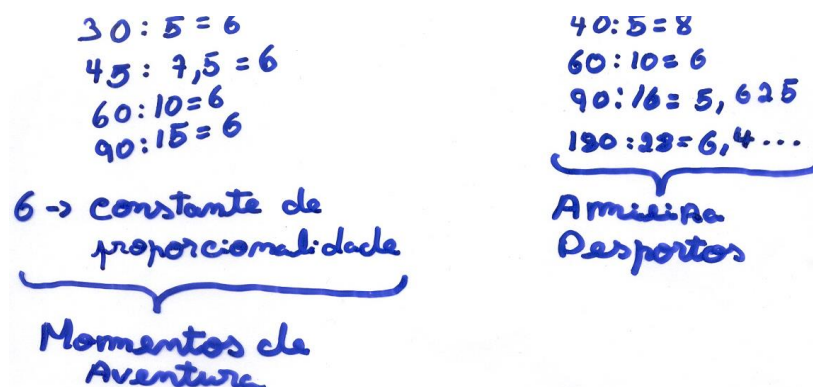 30 : 5 = 6
45 : 7,5 = 6
60 : 10 = 6
90 : 15 = 6
6 -> constante de
proporcionalidade
Momentos de
Aventura
40 : 5 = 8
60 : 10 = 6
90 : 16 = 5,625
180 : 28 = 6,4 ...
Amieira
Desportos